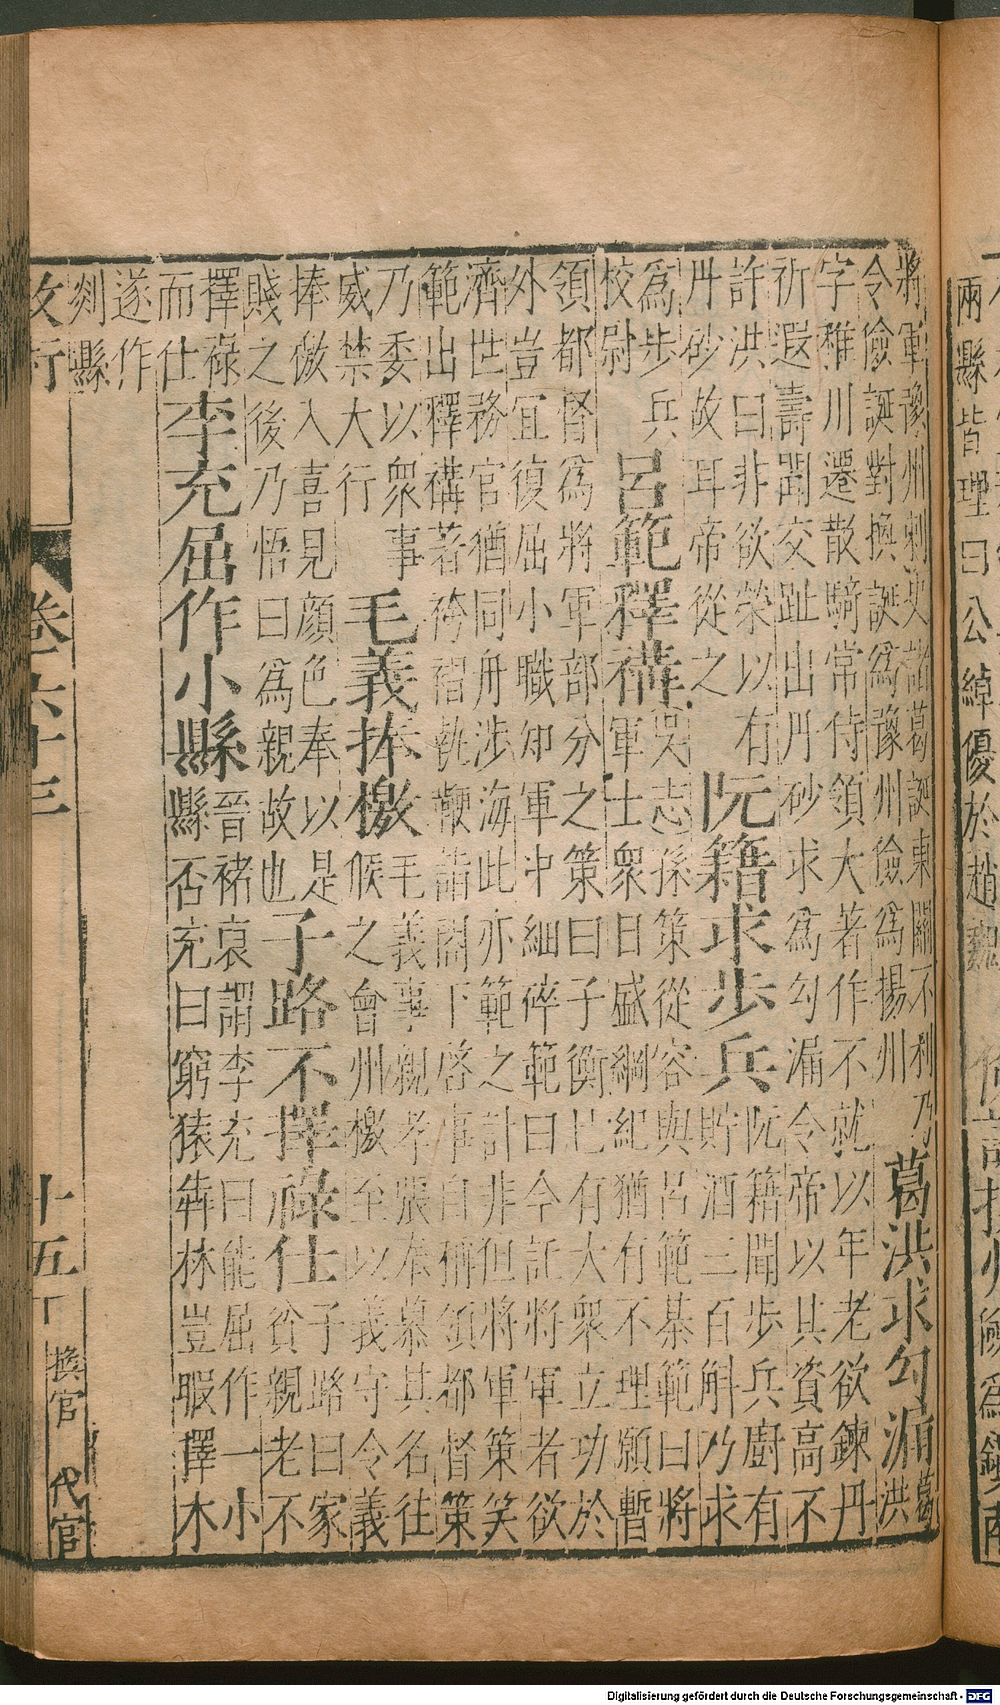 兩縣皆理曰公綽優於趙魏
將軍豫州刺史諸葛誕東關不利乃
令儉誕對換誕爲豫州儉爲揚州
葛洪求勾漏
葛
洪
字稚川遷散騎常侍領大著作不就以年老欲鍊丹
祈遐壽聞交趾出丹砂求爲勾漏令帝以其資高不
許洪曰非欲榮以有
丹砂故耳帝從之
阮籍求步兵
阮籍聞步兵廚有
貯酒三百斛乃求
爲步兵
校尉
呂範釋褠
吳志孫策從容與呂範棊範曰將
軍士衆日盛綱紀猶有不理願暫
領都督爲將軍部分之策曰子衡已有大衆立功於
外豈宜復屈小職知軍中細碎範曰今託將軍者欲
濟世務官猶同舟涉海此亦範之計非但將軍策笑
範出釋褠著袴褶執鞭詣閤下啓事自稱領都督策
乃委以衆事
威禁大行
毛義捧檄
毛義事親孝張奉慕其名往
候之會州檄至以義守令義
捧檄入喜見顏色奉以是
賤之後乃悟曰爲親故也
子路不擇祿仕
子路曰家
貧親老不
擇祿
而仕
李充屈作小縣
晉褚裒謂李充曰能屈作一小
縣否充曰窮猿奔林豈暇擇木
遂作
剡縣
卷六十三
十五
換官
代官
Digitalisierung gefördert durch die Deutsche Forschungsgemeinschaft - DFG